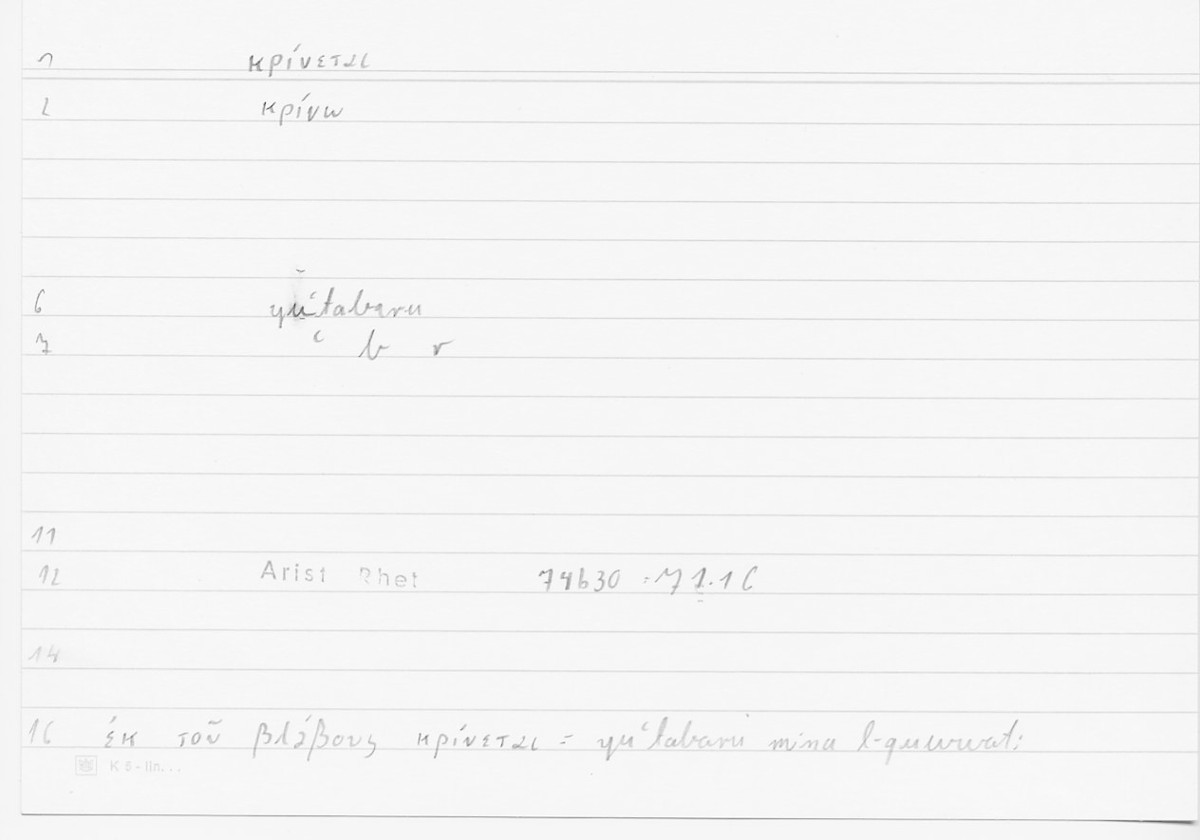 1 κρίνεται
2 κρίνω
6 yuʿtabaru
7 ʿ b r
11
12 Arist Rhet 74b30
14
16 ἐκ τοῦ βλάβους κρίνεται = yuʿtabaru mina l-quwwati